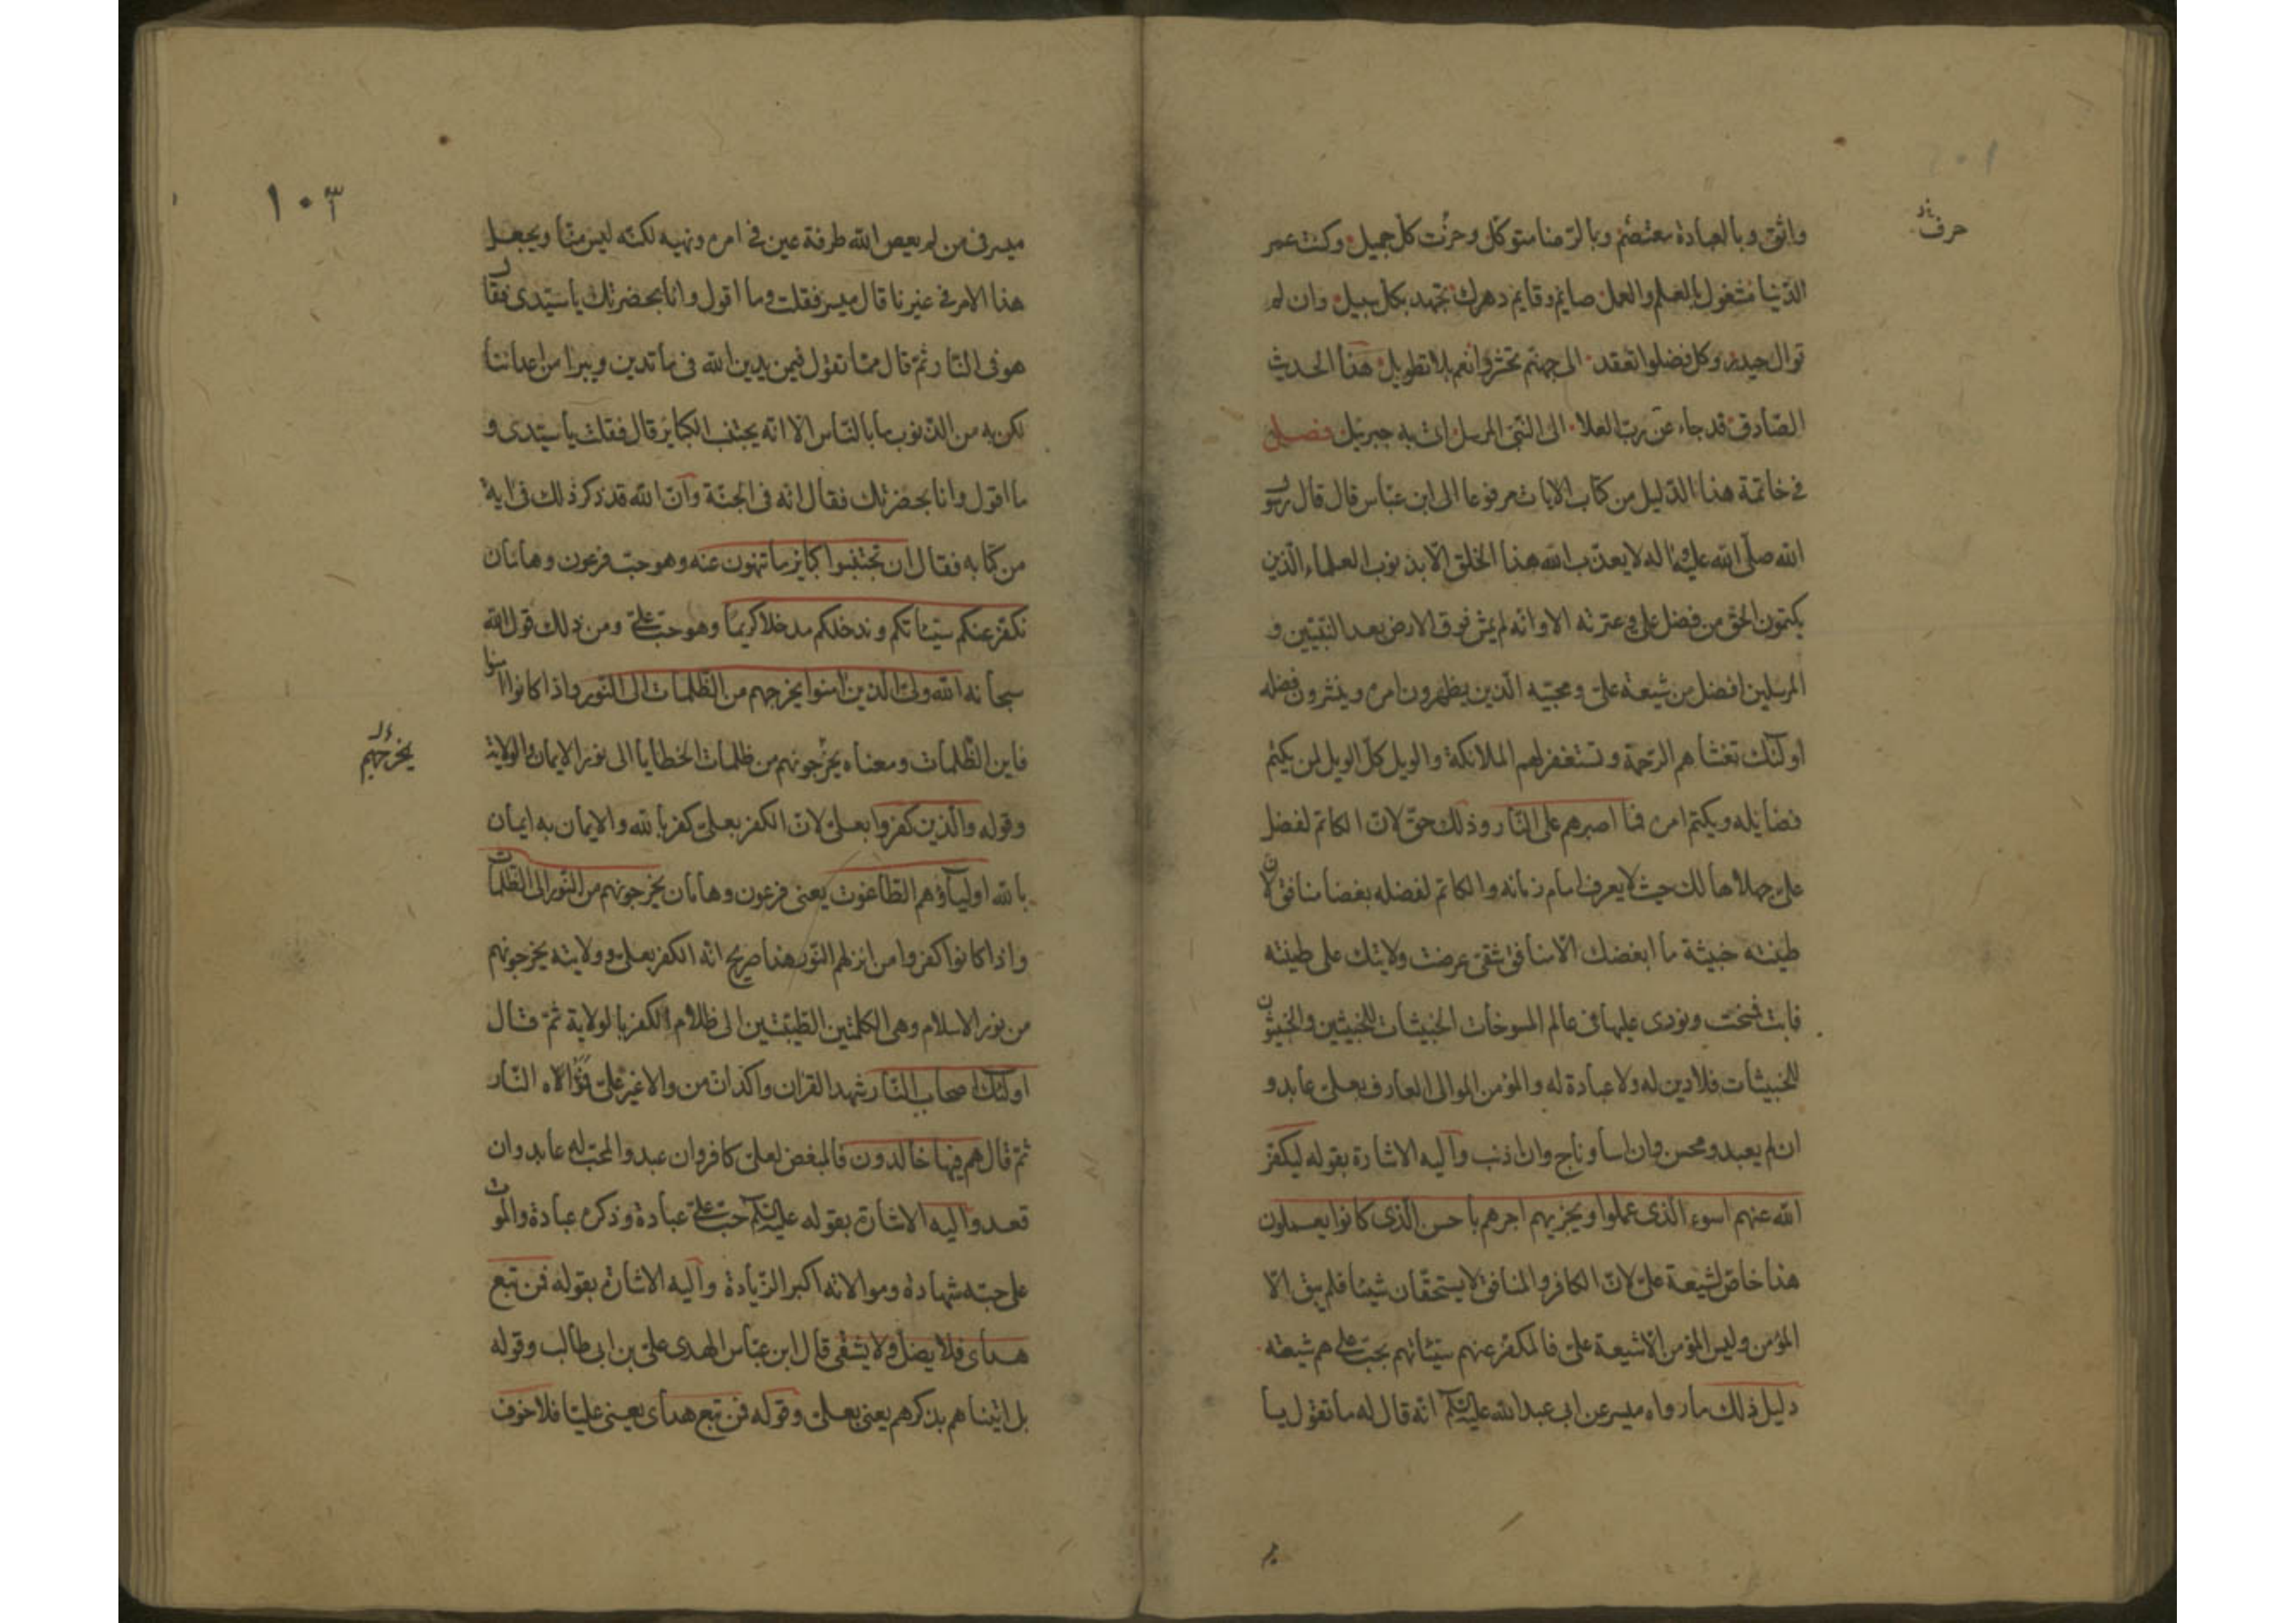 حرف
واثق وبالعبادة معتصم وبالرضا متوكل وحزت كل جميل وكنت عمر
الدنيا مشغول بالعلم والعمل صايم وقايم دهرك تجتهد بكل سبيل وان لم
توال حيدر وكل فضلوا تعقد الى جهنم تحشر وانعم بلا تطويل هذا الحديث
الصادق قد جاء عن رب العلا الى النبي المرسل اتى به جبريل فصل
في خاتمة هذا الدليل من كتاب الايات مرفوعا الى ابن عباس قال قال رسول
الله صلى الله عليه واله لا يعذب الله هذا الخلق الا بذنوب العلماء الذين
يكتمون الحق من فضل علي وعترته الا وانه لم يمش فوق الارض بعد النبيين و
المرسلين افضل من شيعة علي ومحبيه الذين يظهرون امره وينشرون فضله
اولئك تغشاهم الرحمة وتستغفر لهم الملائكة والويل كل الويل لمن يكتم
فضايله ويكتم امره فما اصبرهم على النار وذلك حق لان الكاتم لفضل
علي جهلا هالك حيث لا يعرف امام زمانه والكاتم لفضله بغضا منافق لان
طينته خبيثة ما ابغضك الا منافق شقي عرضت ولايتك على طينته
فابت فمسخت ونودي عليها في عالم المسوخات الخبيثات للخبيثين والخبيثون
للخبيثات فلا دين له ولا عبادة له والمؤمن الموالى العارف بعلي عابد و
ان لم يعبد ومحسن وان اسا وناج وان اذنب واليه الاشارة بقوله ليكفر
الله عنهم اسوء الذي عملوا ويجزيهم اجرهم باحسن الذي كانوا يعملون
هذا خاص لشيعة علي لان الكافر والمنافق لا يستحقان شيئا فلم يبق الا
المؤمن وليس المؤمن الا شيعة علي فالمكفر عنهم سيئاتهم بحب علي هم شيعته
دليل ذلك ما رواه ميسر عن ابي عبدالله عليه السلام انه قال له ما تقول يا
١٠٣
ميسر في من لم يعص الله طرفة عين في امره ونهيه لكنه ليس منا ويجعل
هذا الامر في غيرنا قال ميسر فقلت وما اقول وانا بحضرتك يا سيدي فقال
هو في النار ثم قال مما تقول فيمن يدين الله في ما تدين ويبرا من اعدائنا
لكن به من الذنوب ما بالناس الا انه يجتنب الكبائر قال فقلت يا سيدي و
ما اقول وانا بحضرتك فقال انه في الجنة وان الله قد ذكر ذلك في اية
من كتابه فقال ان تجتنبوا كبائر ما تنهون عنه وهو حب فرعون وهامان
نكفر عنكم سيئاتكم وندخلكم مدخلا كريما وهو حب علي ومن ذلك قول الله
سبحانه الله ولي الذين امنوا يخرجهم من الظلمات الى النور واذا كانوا امنوا
فاين الظلمات ومعناه يخرجونهم من ظلمات الخطايا الى نور الايمان والولاية
يخرجهم
وقوله والذين كفروا بعلي لان الكفر بعلي كفر بالله والايمان به ايمان
بالله اولياؤهم الطاغوت يعني فرعون وهامان يخرجونهم من النور الى الظلمات
واذا كانوا كفروا من اين لهم النور هذا صريح انه الكفر بعلي وولايته يخرجونهم
من نور الاسلام وهي الكلمتين الطيبتين الى ظلام الكفر بالولاية ثم قال
اولئك اصحاب النار شهد القران واكد ان من والا غير علي الاه النار
ثم قال هم فيها خالدون فالمبغض لعلي كافر وان عبد والمحب له عابد وان
قعد واليه الاشارة بقوله عليه السلام حب علي عبادة وذكره عبادة والموت
على حبه شهادة وموالاته اكبر الزيادة واليه الاشارة بقوله فمن تبع
هداي فلا يضل ولا يشقى قال ابن عباس الهدى علي بن ابي طالب وقوله
بل اتيناهم بذكرهم يعني بعلي وقوله فمن تبع هداي يعني عليا فلا خوف